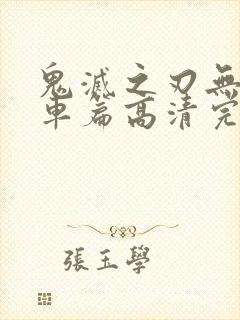 鬼滅之刃無
車篇高清完
張玉學